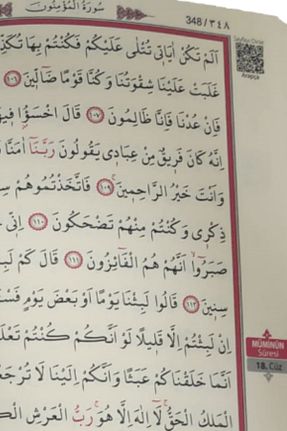 سُورَةُ الْمُؤْمِنُونَ
348 / ٣٤٨
Sayfayı Dinle
Arapça
اَلَمْ تَكُنْ اٰيَاتٖي تُتْلٰى عَلَيْكُمْ فَكُنْتُمْ بِهَا
غَلَبَتْ عَلَيْنَا شِقْوَتُنَا وَكُنَّا قَوْمًا ضَٓالّٖينَ ١٠٦
فَاِنْ عُدْنَا فَاِنَّا ظَالِمُونَ ١٠٧ قَالَ اخْسَؤُ۫ا
اِنَّهُ كَانَ فَرٖيقٌ مِنْ عِبَادٖي يَقُولُونَ رَبَّنَٓا اٰمَنَّا
وَاَنْتَ خَيْرُ الرَّاحِمٖينَ ١٠٩ فَاتَّخَذْتُمُوهُمْ
ذِكْرٖي وَكُنْتُمْ مِنْهُمْ تَضْحَكُونَ ١١٠ اِنّٖي
صَبَرُٓوا اَنَّهُمْ هُمُ الْفَٓائِزُونَ ١١١ قَالَ كَمْ
سِنٖينَ ١١٢ قَالُوا لَبِثْنَا يَوْمًا اَوْ بَعْضَ يَوْمٍ
اِنْ لَبِثْتُمْ اِلَّا قَلٖيلًا لَوْ اَنَّكُمْ كُنْتُمْ
اَنَّمَا خَلَقْنَاكُمْ عَبَثًا وَاَنَّكُمْ اِلَيْنَا لَا
الْمَلِكُ الْحَقُّ لَٓا اِلٰهَ اِلَّا هُوَ رَبُّ الْعَرْشِ
MÜMİNÛN
Sûresi
18. Cüz